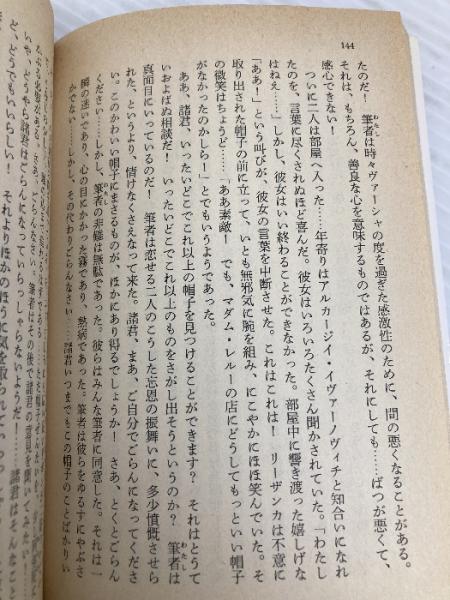 144
たのだ! 筆者は時々ヴァーシャの度を過ぎた感激性のために、間の悪くなることがある。
わたし
それは、もちろん、善良な心を意味するものではあるが、それにしても……ばつが悪くて、
感心できない!
ついに二人は部屋へ入った……年寄りはアルカージイ・イヴァーノヴィチと知合いになれ
たのを、言葉に尽されぬほど喜んだ。彼女はいろいろたくさん聞かされていた。「わたし
はねえ……」しかし、彼女はいい終わることができなかった。部屋中に響き渡った嬉しげな
「ああ!」という叫びが、彼女の言葉を中断させた。これはこれは! リーザンカは不意に
取り出された帽子の前に立って、いとも無邪気に腕を組み、にこやかにほほ笑んでいた。そ
の微笑はちょうど……ああ素敵! でも、マダム・レルーの店にどうしてもっといい帽子
がなかったのかしら!とでもいうようであった。
ああ、諸君、いったいどこでこれ以上の帽子を見つけることができます? それはとうて
いおよばぬ相談だ! いったいどこでこれ以上のものをさがし出そうというのか? 筆者は
わたし
真面目にいっているのだ! 筆者は恋せる二人のこうした忘恩の振舞いに、多少憤慨させら
れた、というより、情けなくさえなって来た。諸君、まあ、ご自分でごらんになってくださ
い。このかわいい帽子にまさるものが、ほかにあり得るでしょうか! さあ、とくとごらん
ください……しかし、筆者の非難は無駄であった。彼らはみんな筆者に同意した。それは一
わたし
瞬の迷いであり、心の目にかかった霧であり、熱病であった。筆者は彼らをゆるすにやぶさ
かでない……しかし、その代わりごらんなさい……諸君いつまでもこの帽子のことばかりい